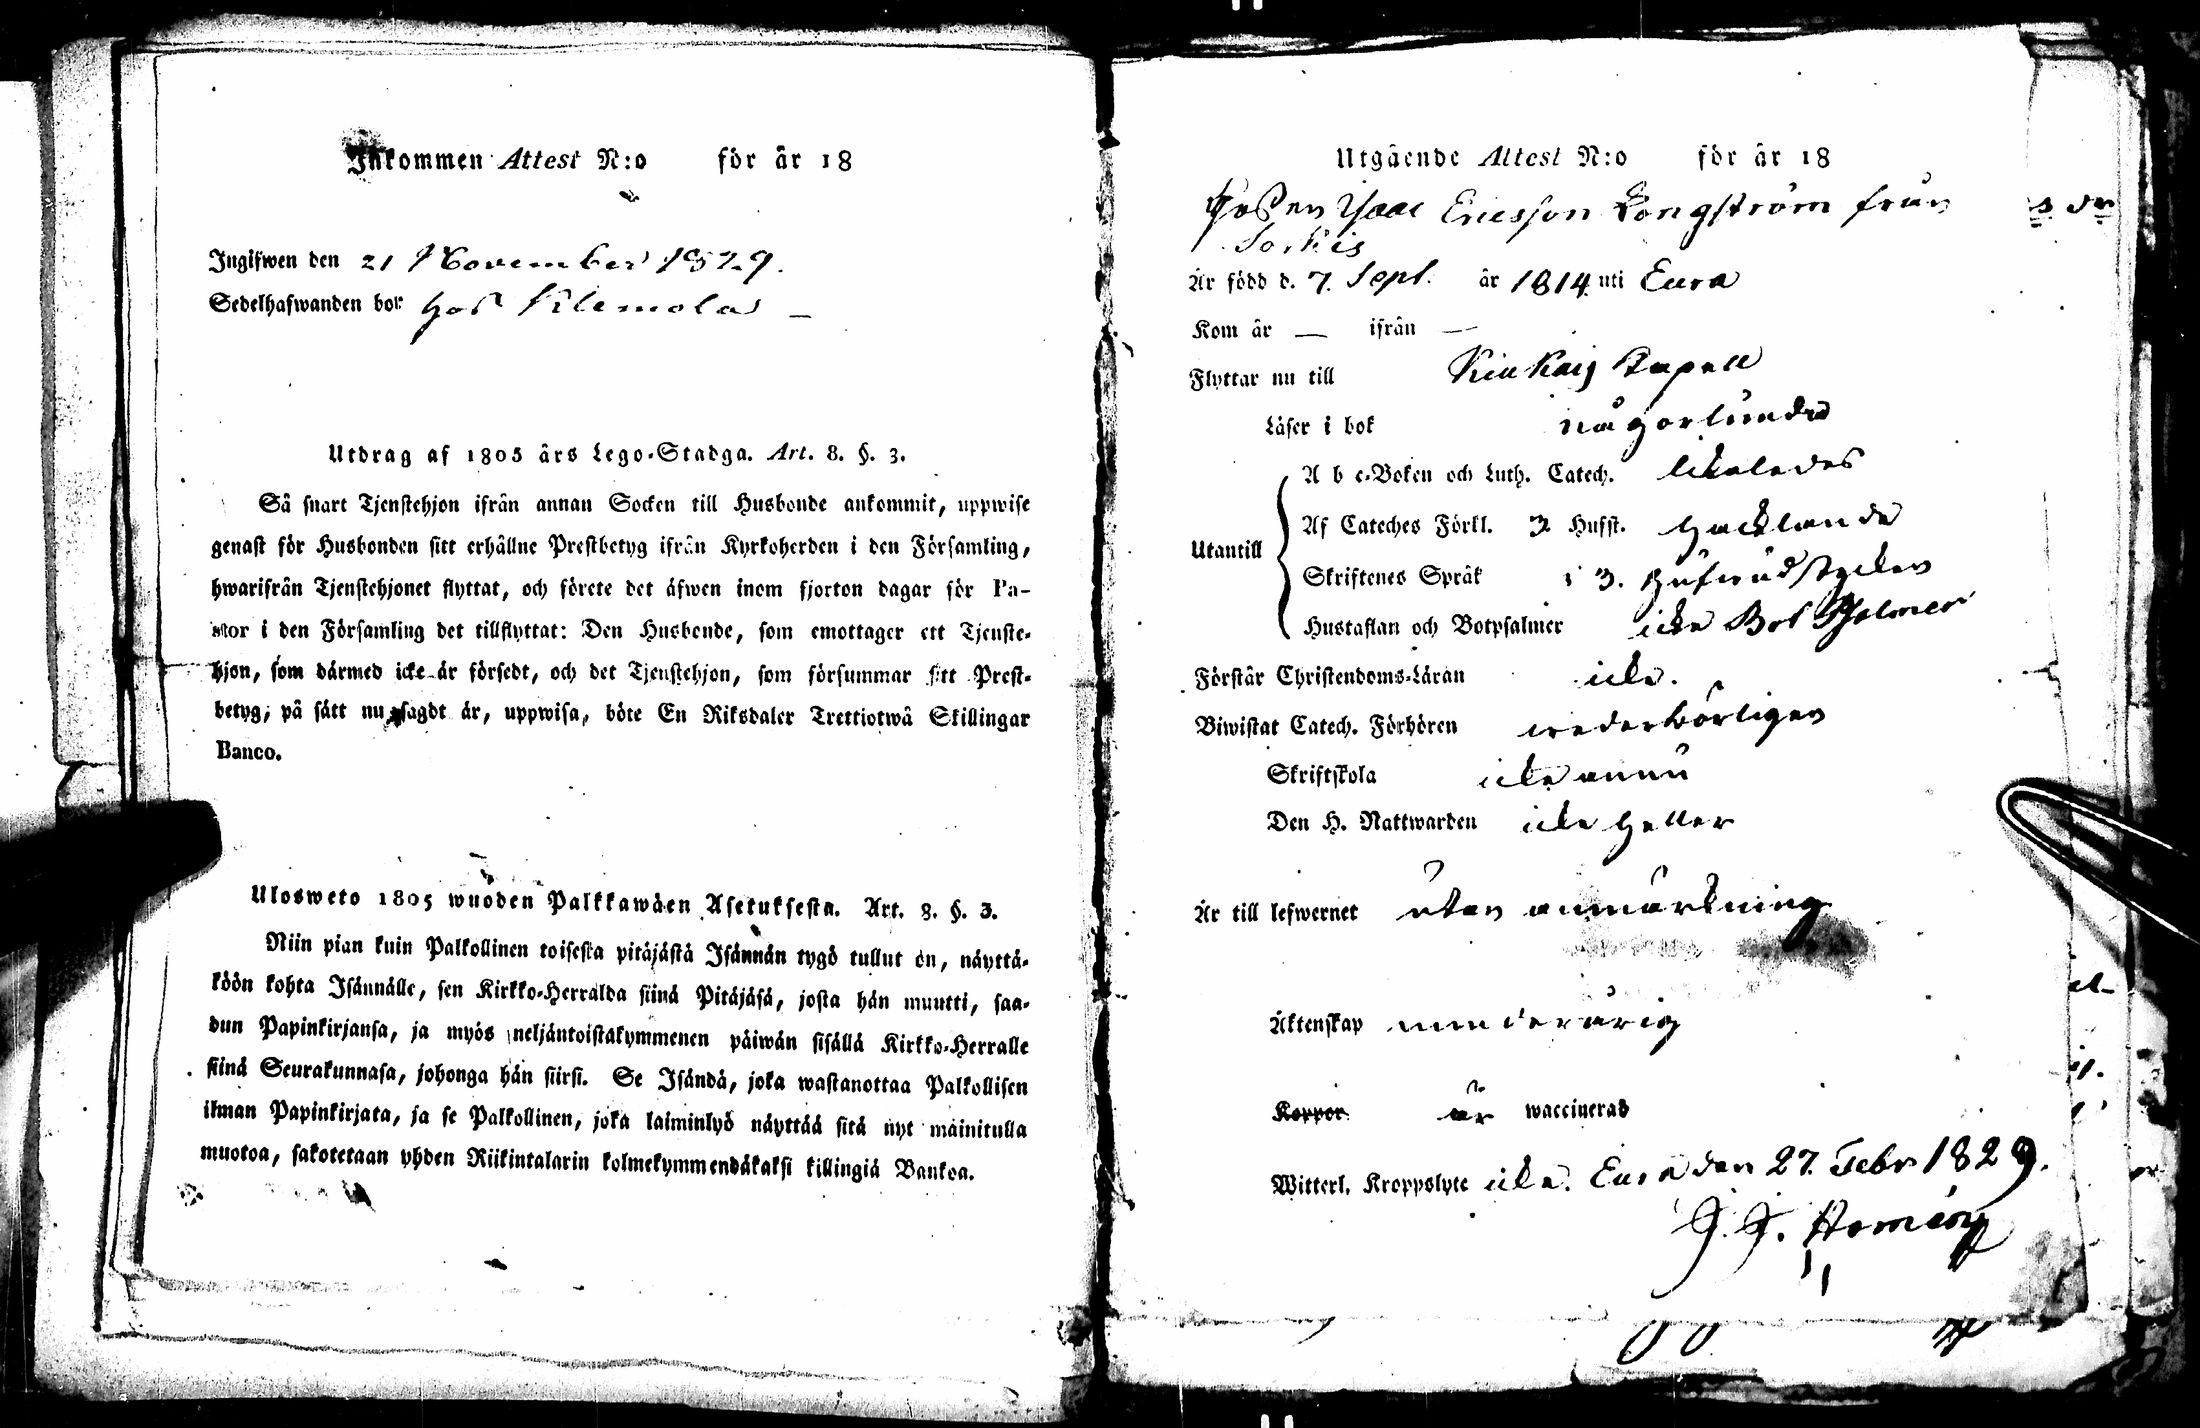 Inkommen Attest N:o för år 18
Ingifwen den 21 November 1829.
Sedelhafwanden bor hos Klemola
Utdrag af 1805 års Lego-Stadga. Art. 8. §. 3.
Så snart Tjenstehjon ifrån annan Socken till Husbonde ankommit, uppwise
genast för Husbonden sitt erhållne Prestbetyg ifrån Kyrkoherden i den Församling,
hwarifrån Tjenstehjonet flyttat, och förete det äfwen inom fjorton dagar för Pa-
stor i den Församling det tillflyttat: Den Husbonde, som emottager ett Tjenste-
hjon, som därmed icke är försedt, och det Tjenstehjon, som försummar sitt Prest-
betyg, på sätt nu sagdt är, uppwisa, böte En Riksdaler Trettiotwå Skillingar
Banco.
Ulosweto 1805 wuoden Palkkawäen Asetuksesta. Art. 8. §. 3.
Niin pian kuin Palkollinen toisesta pitäjästä Isännän tygö tullut on, näyttä-
köön kohta Isännälle, sen Kirkko-Herralda siinä Pitäjäsä, josta hän muutti, saa-
dun Papinkirjansa, ja myös neljäntoistakymmenen päiwän sisällä Kirkko-Herralle
siinä Seurakunnasa, johonga hän siirsi. Se Isändä, joka wastanottaa Palkollisen
ilman Papinkirjata, ja se Palkollinen, joka laiminlyö näyttää sitä nyt mainitulla
muotoa, sakotetaan yhden Riikintalarin kolmekymmendäkaksi killingiä Bankoa.
Utgående Attest N:o för år 18
Gossen Isaac Ericsson Longström från
Sorkis
Är född d. 7. Sept. år 1814 uti Eura
Kom år — ifrån —
Flyttar nu till Kiukais Kapell
Läser i bok någorlunda
A b c-Boken och Luth. Catech. likaledes
Af Cateches Förkl. 3 Hufst. hacklande
Utantill
Skriftenes Språk i 3. Hufvudstycken
Hustaflan och Botpsalmer icke Bot Psalmer
Förstår Christendoms-Läran icke.
Biwistat Catech. Förhören wederbörligen
Skriftskola icke ännu
Den H. Nattwarden icke heller
Är till lefwernet utan anmärkning
Äktenskap minderårig
Koppor är waccinerad
Witterl. Kroppslyte icke. Eura den 27. Febr 1829.